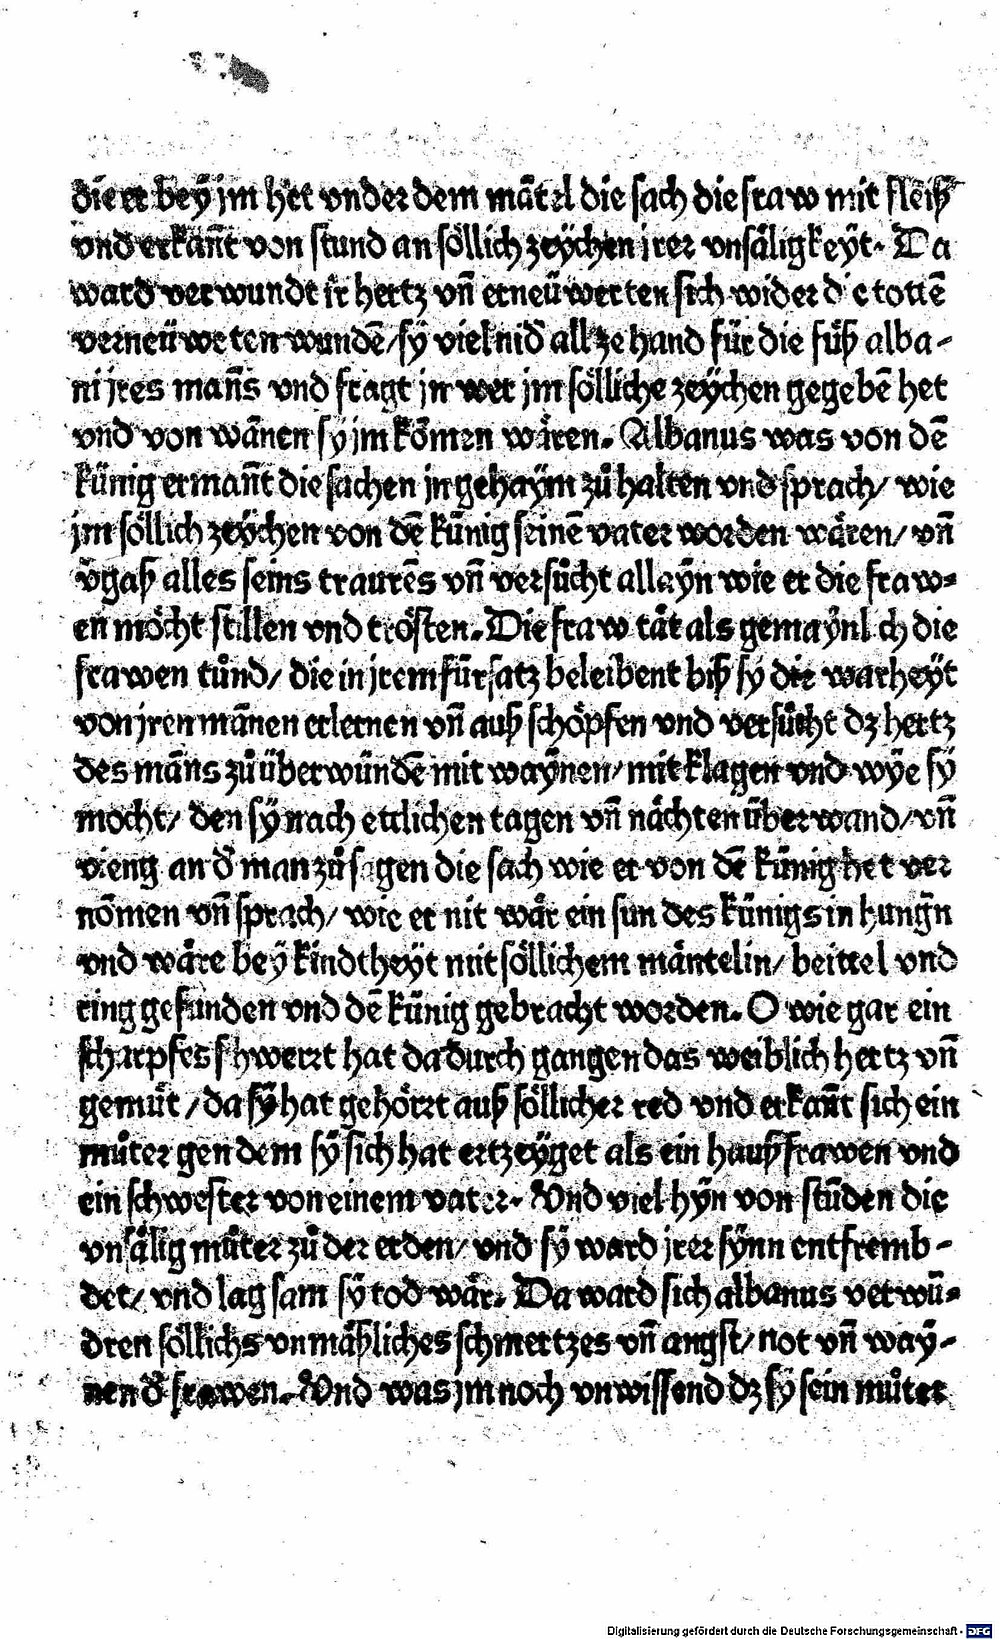 die er bey jm het vnder dem mãtel die sach die fraw mit fleiß
vnd erkañt von stund an söllich zeÿchen irer vnsäligkeÿt. Da
ward verwundt ir hertz vñ erneüwerten sich wider die tottẽ
verneüweten wundẽ/ sÿ viel nid̃ all ze hand für die füß alba-
ni jres mañs vnd fragt jn wer jm sölliche zeÿchen gegebẽ het
vnd von wãnen sy jm kõmen wären. Albanus was von dẽ
künig ermañt die sachen jn gehaÿm zů halten vnd sprach/ wie
jm söllich zeÿchen von dẽ künig seinẽ vater worden wären/ vñ
v̈gaß alles seins traurẽs vñ versůcht allaÿn wie er die fraw-
en möcht stillen vnd trösten. Die fraw tät als gemaÿnlich die
frawen tůnd/ die in jrem fürsatz beleibent biß sy die warheÿt
von jren mãnen erlernen vñ auß schöpfen vnd versůcht dz hertz
des mãns zů überwündẽ mit waÿnen/ mit klagen vnd wÿe sÿ
mocht/ den sÿ nach ettlichen tagen vñ nächten überwand/ vñ
vieng an d̃ man zů sagen die sach wie er von dẽ künig het ver
nõmen vñ sprach/ wie er nit wär ein sun des künigs in hung̃n
vnd wäre beÿ kindtheÿt mit söllichem mäntelin/ beittel vnd
ring gefunden vnd dẽ künig gebracht worden. O wie gar ein
scharpfes schwerzt hat da durch gangen das weiblich hertz vñ
gemüt/ da sÿ hat gehörzt auß söllicher red vnd erkañt sich ein
můter gen dem sÿ sich hat ertzeÿget als ein haußfrawen vnd
ein schwester von einem vater. Vnd viel hÿn von stũden die
vnsälig můter zů der erden/ vnd sÿ ward jrer sÿnn entfremb-
det/ vnd lag sam sÿ tod wär. Da ward sich albanus verwũ-
dren söllichs vnmäßliches schmertzes vñ angst/ not vñ waÿ-
nen d̃ frawen. Vnd was jm noch vnwissend dz sÿ sein můter
Digitalisierung gefördert durch die Deutsche Forschungsgemeinschaft - DFG